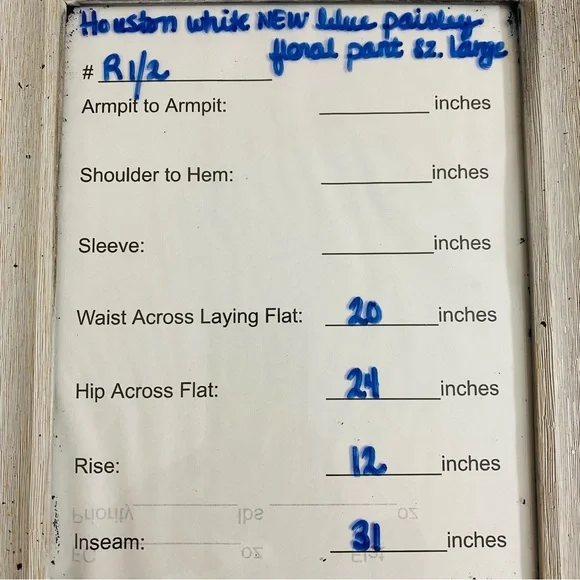 Houston white NEW blue paisley
floral pant sz. large
# R1/2
Armpit to Armpit: inches
Shoulder to Hem: inches
Sleeve: inches
Waist Across Laying Flat: 20 inches
Hip Across Flat: 24 inches
Rise: 12 inches
Priority lbs oz
Inseam: 31 inches
FC oz Flat